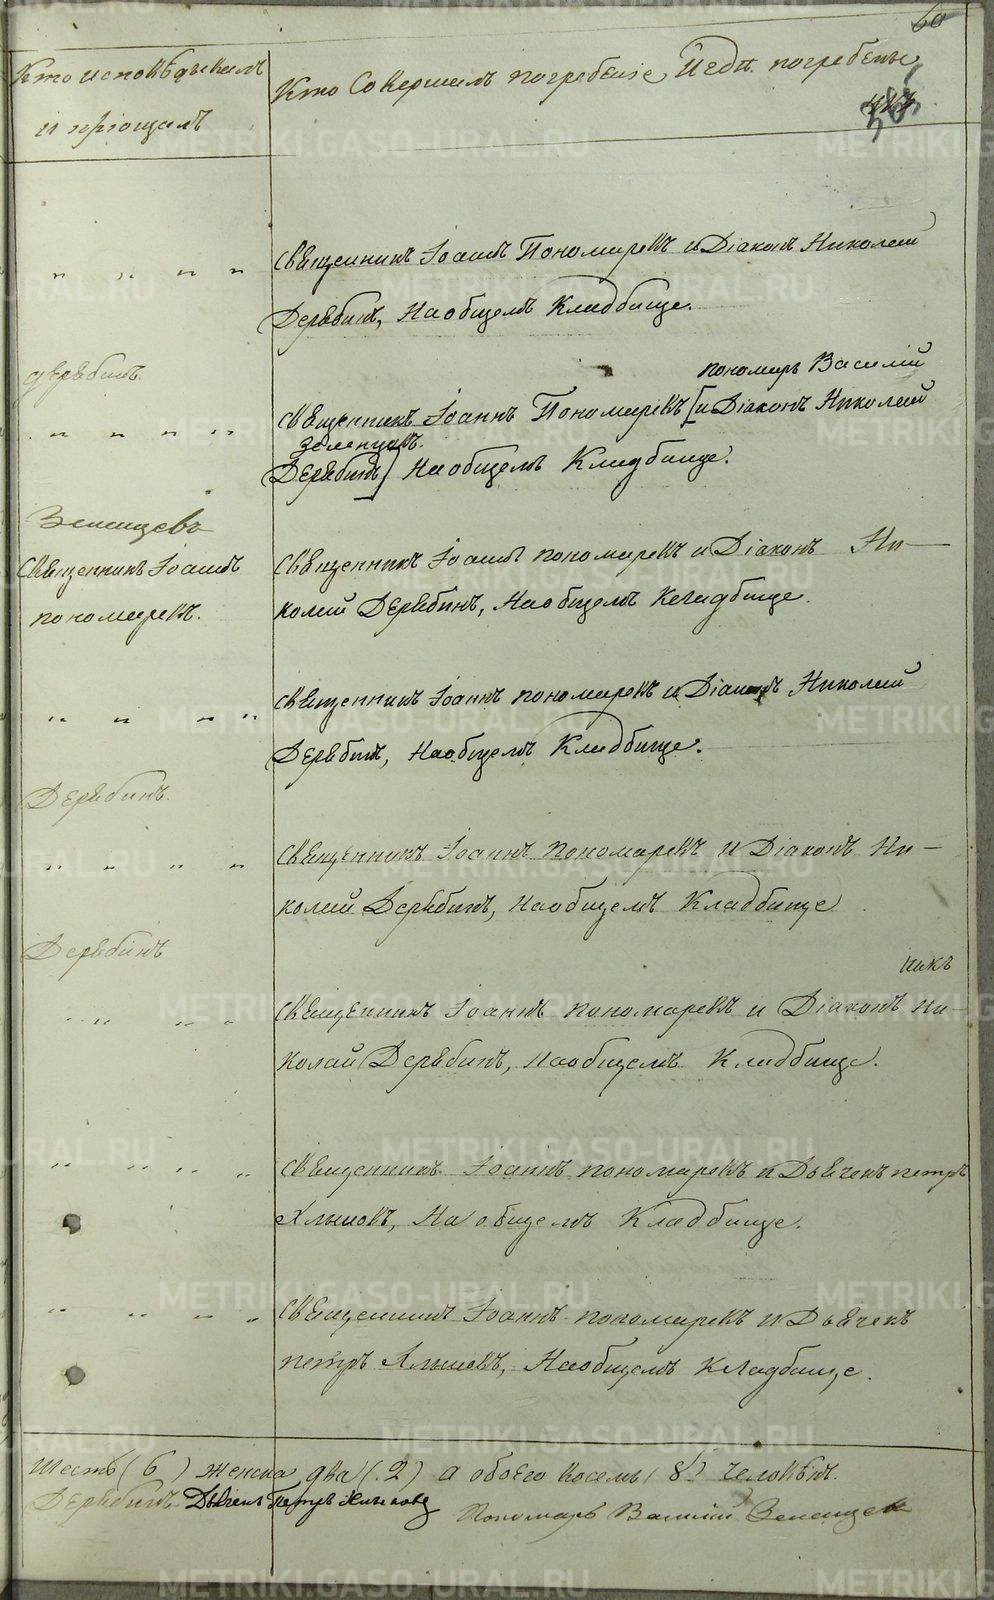 60
Кто исповѣдывалъ
и пріощалъ
Кто Совершалъ погребеніе И гдѣ погребены
Священникъ Іоаннъ Пономаревъ и Діаконъ Николай
Дерябинъ, На общемъ Кладбище.
Дерябинъ.
пономарь Василій
Священникъ Іоаннъ Пономаревъ [и Діаконъ Николай
Зеленцовъ.
Дерябинъ] На общемъ Кладбище.
Зеленцевъ
Священникъ Іоаннъ
пономаревъ.
Священникъ Іоаннъ пономаревъ и Діаконъ Ни-
колай Дерябинъ, На общемъ Кладбище.
Священникъ Іоаннъ пономаревъ и Діаконъ Николай
Дерябинъ, На общемъ Кладбище.
Дерябинъ.
Священникъ Іоаннъ пономаревъ и Діаконъ Ни-
колай Дерябинъ, На общемъ Кладбище
Дерябинъ
никъ
Священникъ Іоаннъ пономаревъ и Діаконъ Ни-
колай Дерябинъ, На общемъ Кладбище.
Священникъ Іоаннъ пономаревъ и Дьячекъ петръ
Хлыновъ, На общемъ Кладбище.
Священникъ Іоаннъ пономаревъ и Дьячекъ
петръ Хлыновъ, На общемъ Кладбище.
Шесть (6) женска два (2) а обоего восемь (8) человѣкъ.
Дерябинъ Дьячекъ Петръ Хлыновъ Пономарь Василий Зеленцевъ
METRIKI.GASO-URAL.RU